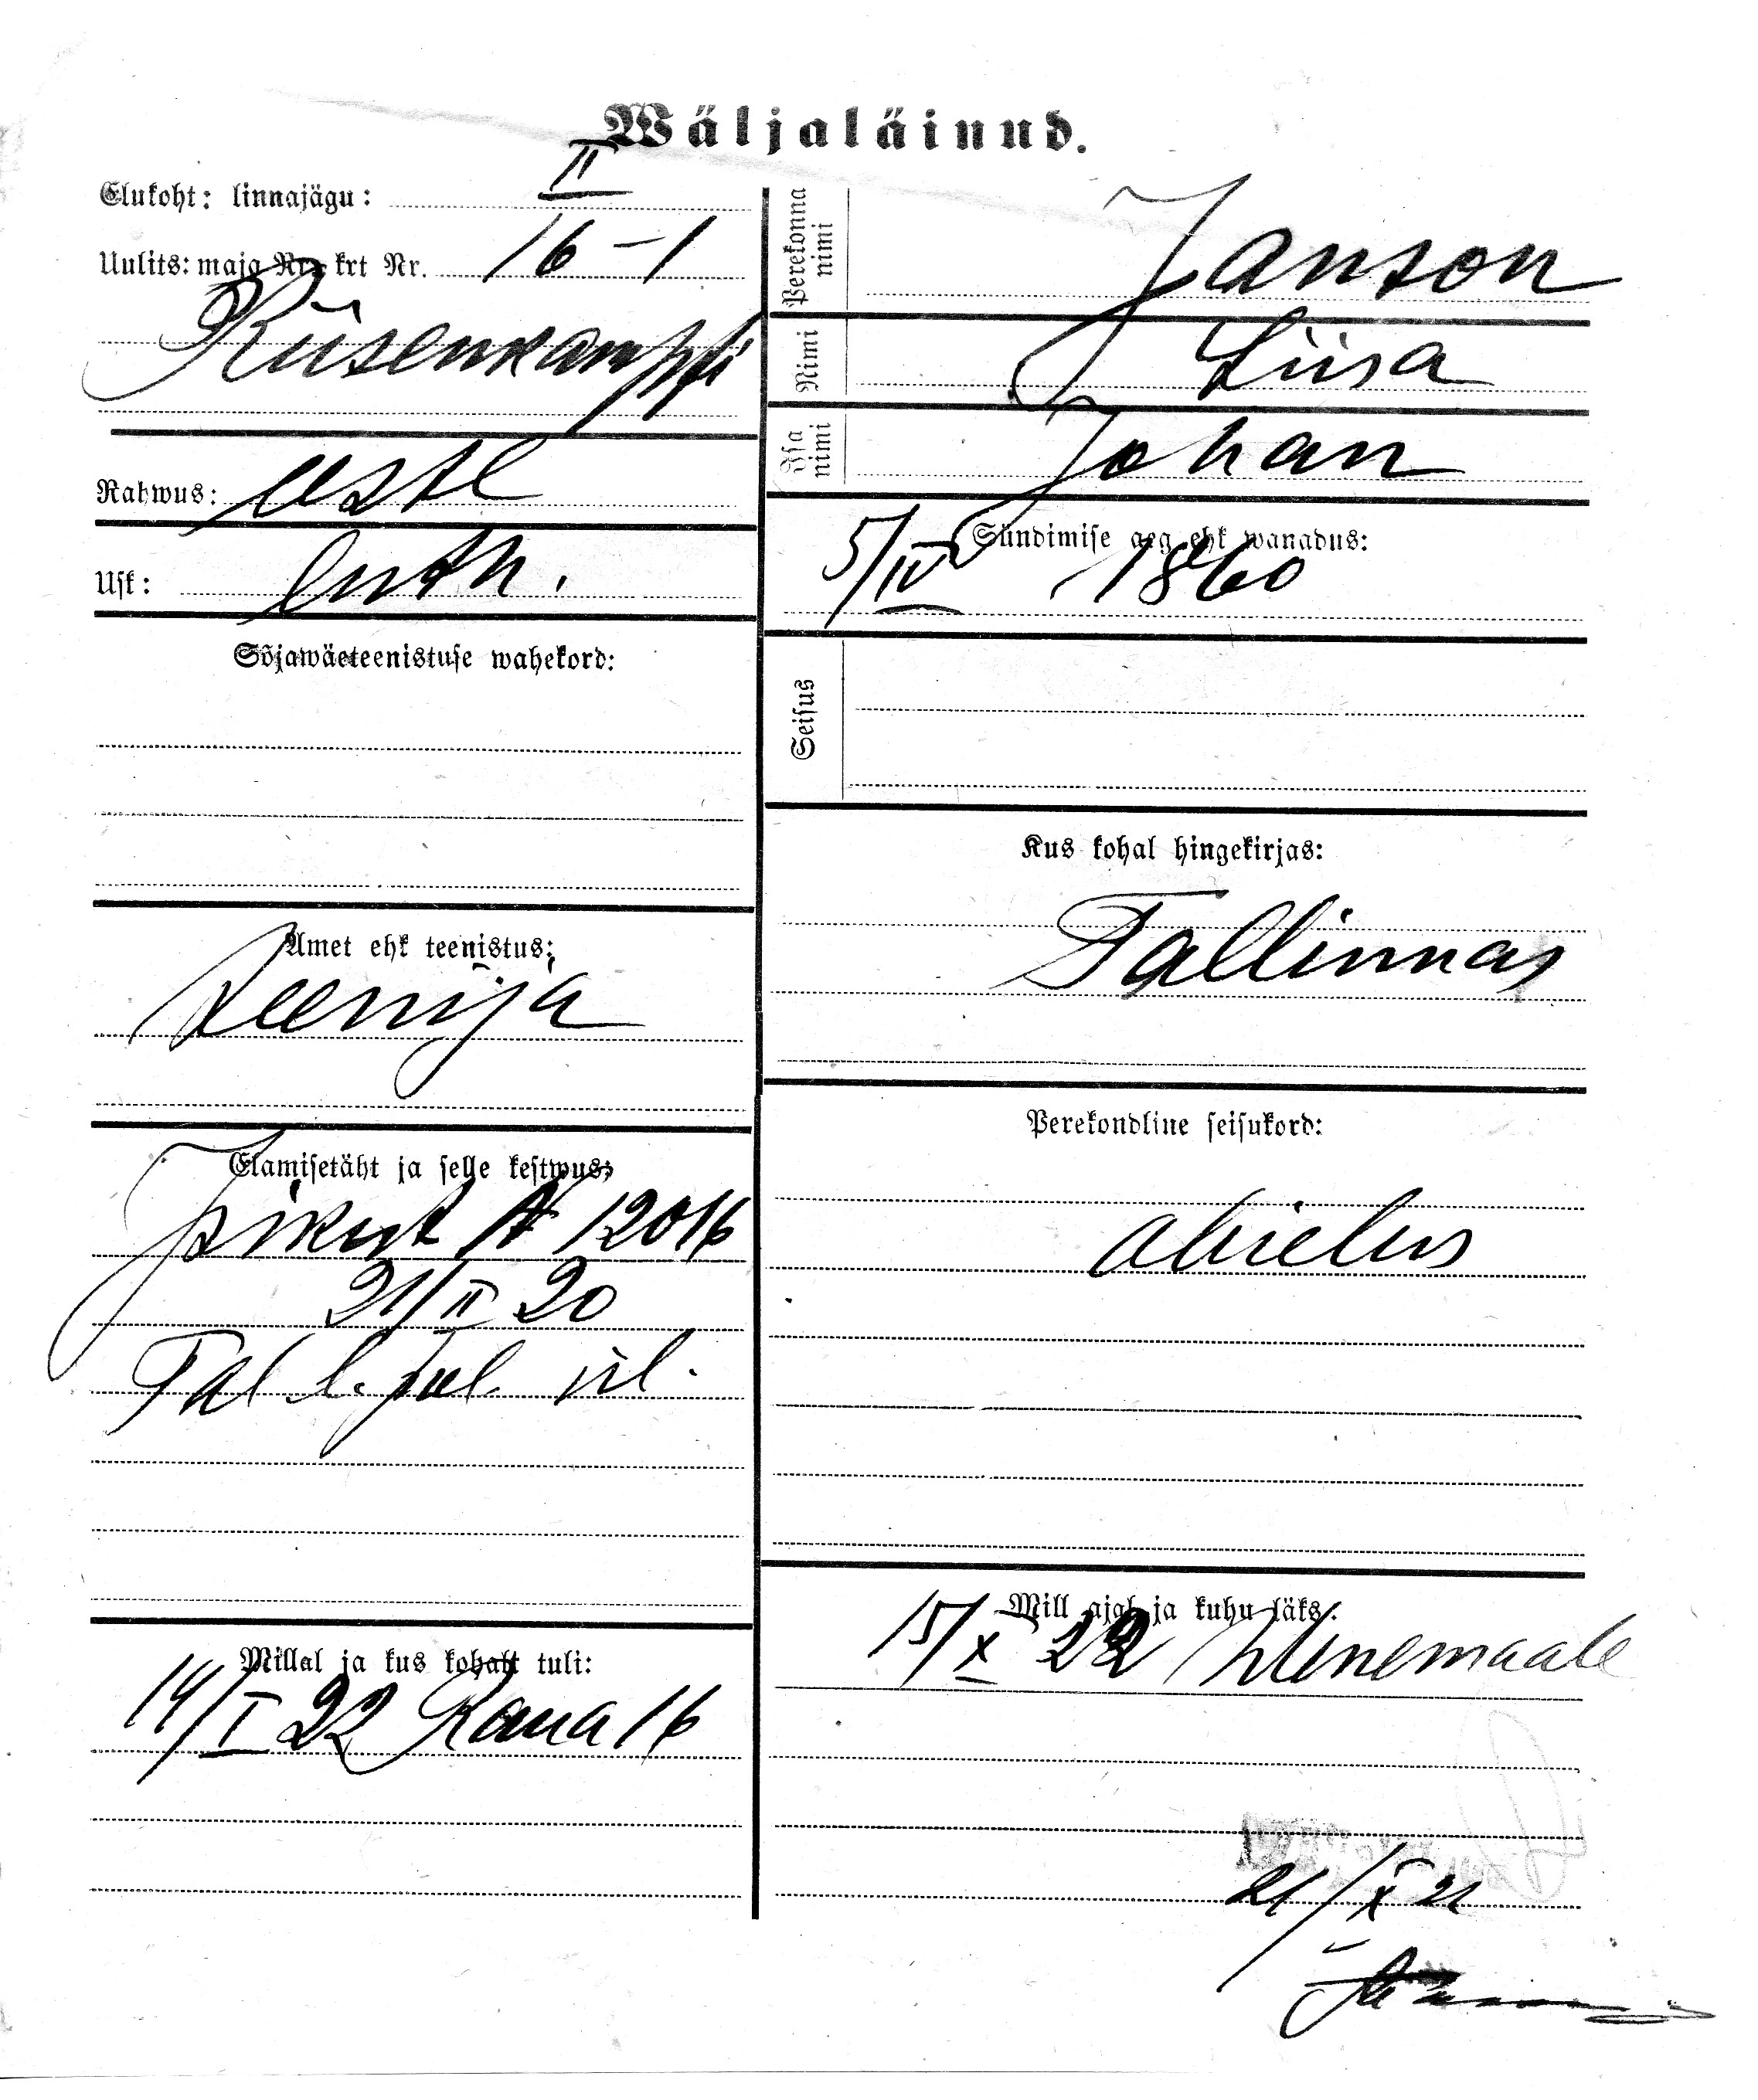 Wäljaläinud.
Elukoht: linnajägu: II
Uulits: maja Nr., krt Nr. 16-1
Rüsenkampfi
Rahwus: eestl
Usk: luth.
Sõjawäeteenistuse wahekord:
Amet ehk teenistus:
teenija
Elamisetäht ja selle kestwus:
isikut A 12016
21/II 20
Tal. l. pol. ül.
Millal ja kus kohalt tuli:
14/I 22 Raua 16
Perekonna nimi
Janson
Nimi
Liisa
Isa nimi
Johan
Sündimise aeg ehk wanadus:
5/IV 1860
Seisus
Kus kohal hingekirjas:
Tallinnas
Perekondline seisukord:
abielus
Mill ajal ja kuhu läks:
15/X 22 Wenemaale
21/X 22